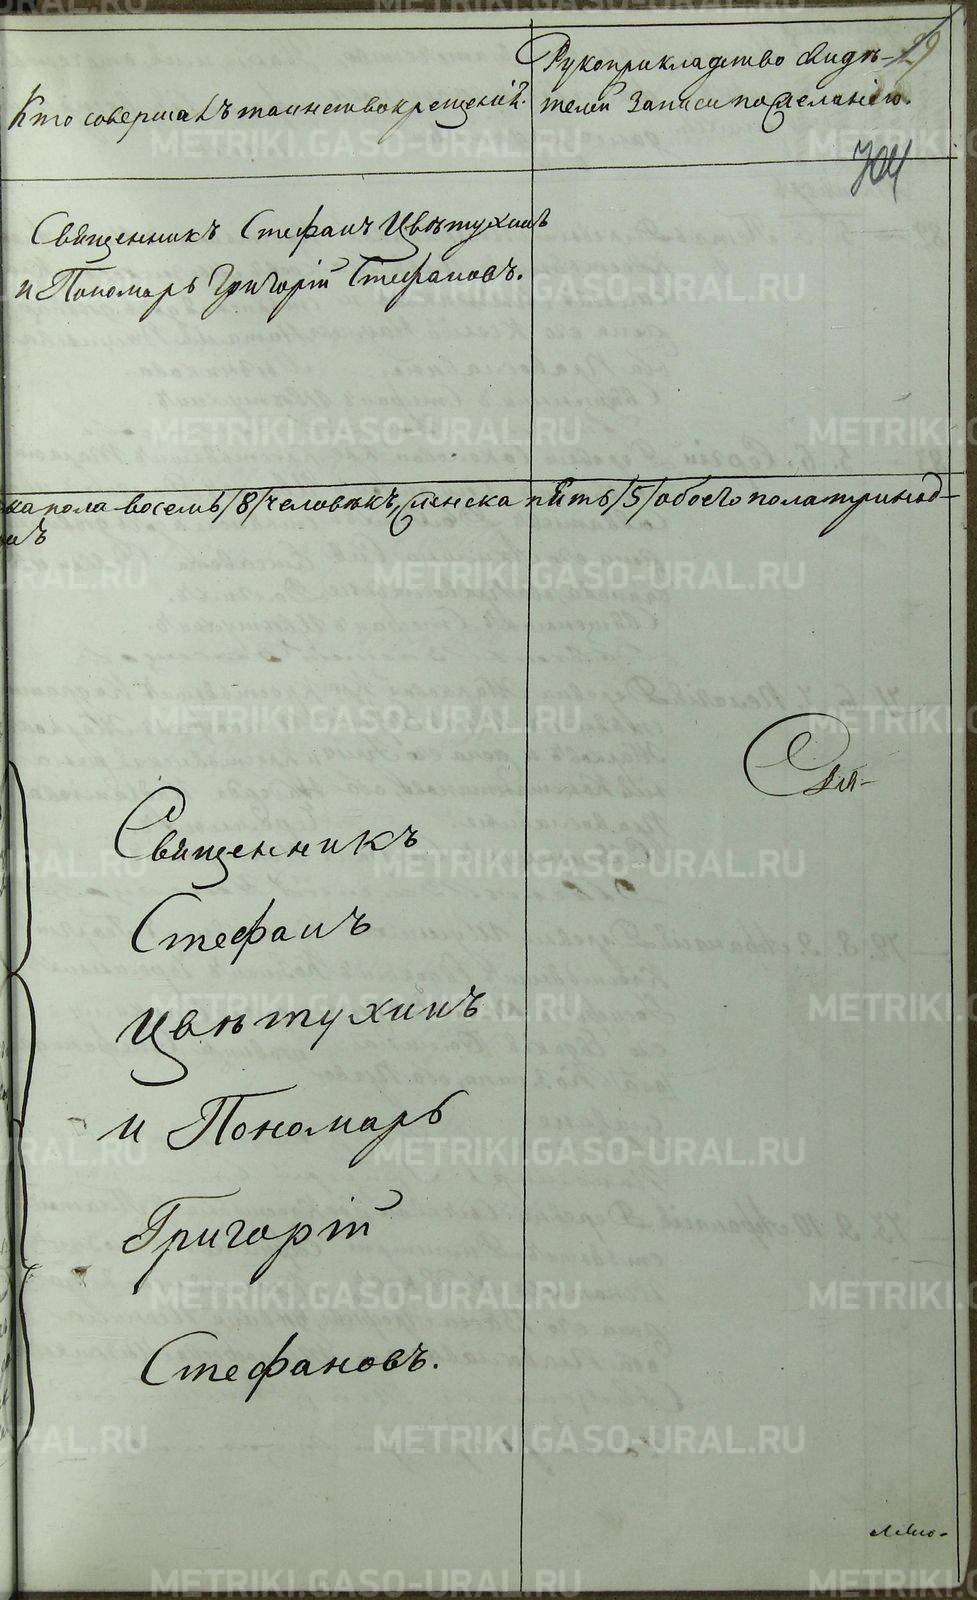 29
Кто совершалъ таинство крещенiй.
Рукоприкладство свидѣ-
телей записи по желанiю.
704
Священникъ Стефанъ Цвѣтухинъ
и Пономарь Григорiй Стефановъ.
ка пола восемь /8/ человѣкъ, женска пять /5/ обоего пола тринад-
Священникъ
Стефанъ
Цвѣтухинъ
и Пономарь
Григорiй
Стефановъ.
METRIKI.GASO-URAL.RU